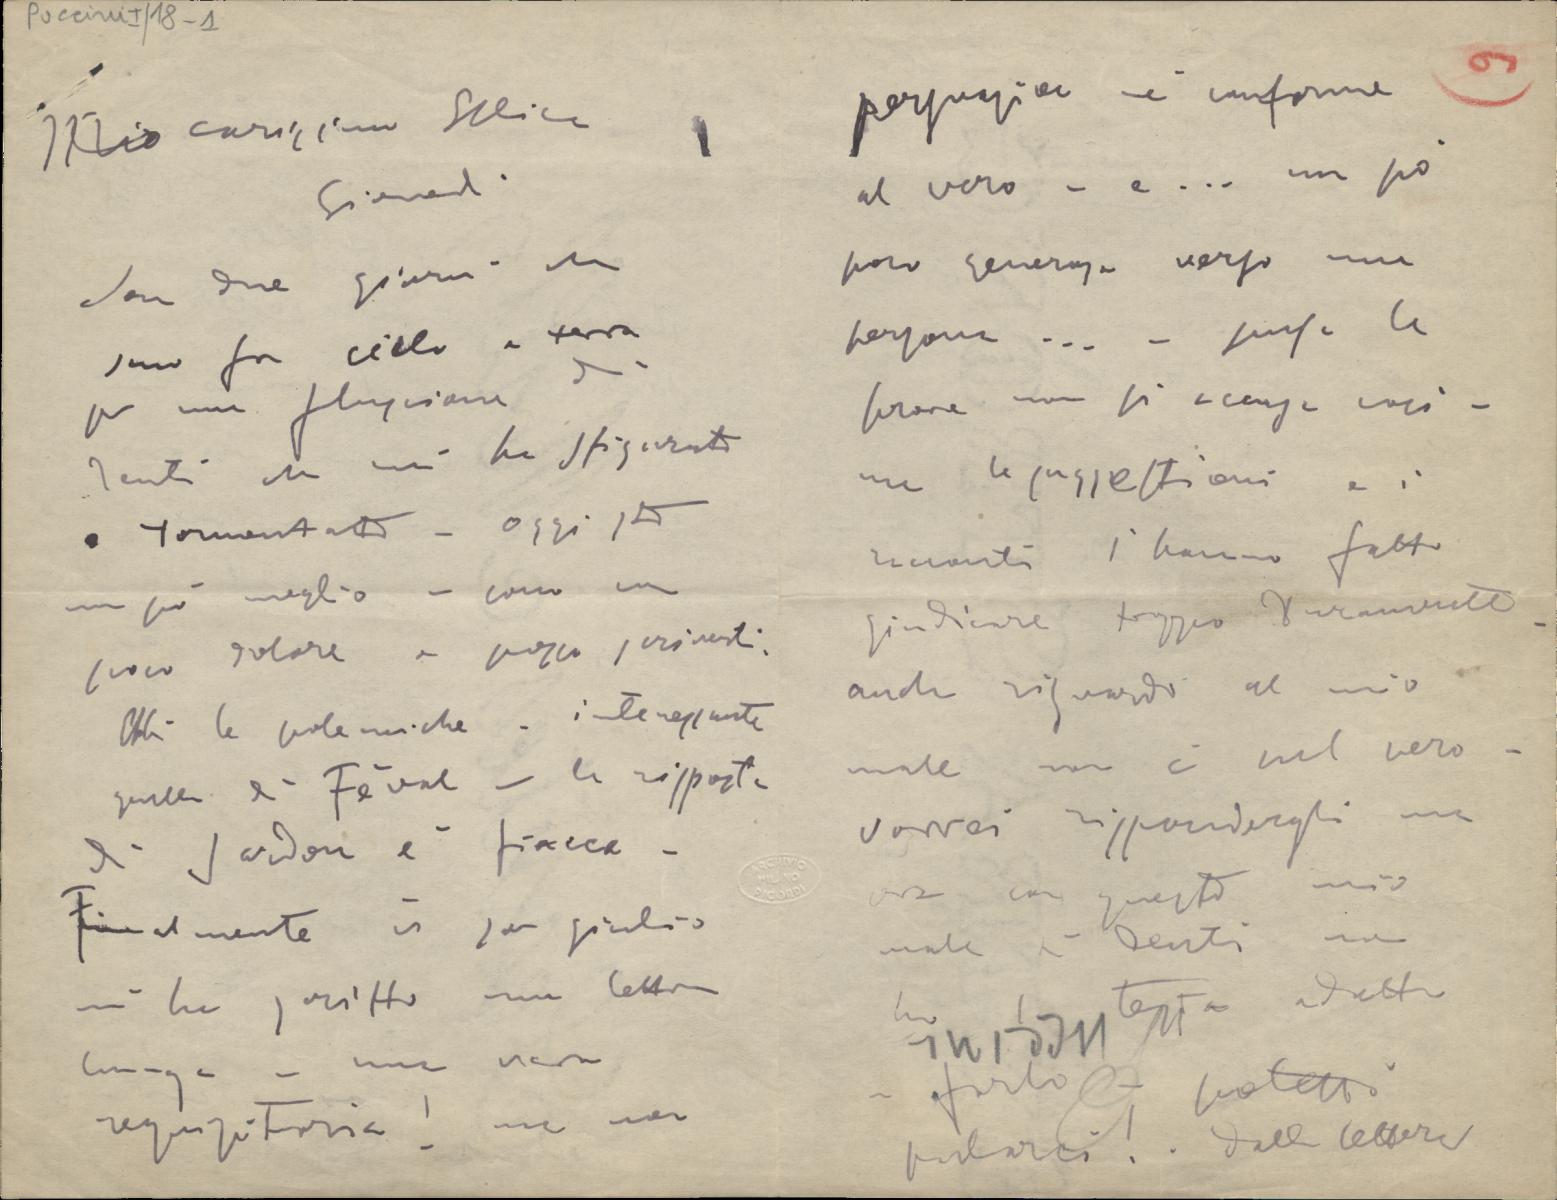 Puccini I/18-1
Mio carissimo
Giovedì
Son due giorni che
sono fra cielo e terra
per una flussione di
denti che mi ha sfigurato
e tormentato - oggi sto
un pò meglio - cioè un
poco dolore e posso scriverti.
Ebbi le polemiche - interessante
quella di Féval - la risposta
di Sardou è fiacca -
Finalmente il Sor Giulio
mi ha scritto una lettera
lunga - una vera
requisitoria! ma non
(9)
persuasiva nè conforme
al vero - e ... un pò
poco generosa verso una
persona ... - forse la
prova non si accusa così -
ma le suggestioni e i
racconti l'hanno fatto
giudicare troppo duramente -
anche riguardo al mio
male non è nel vero -
vorrei rispondergli ma
ora con questo mio
male di denti non
ho la testa adatta
Puccini
a farlo - potessi
parlarci! . dalla lettera
ARCHIVIO
MILANO
RICORDI